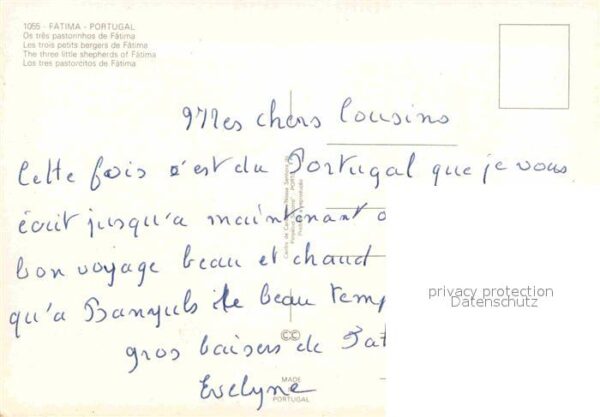 1055 - FÁTIMA - PORTUGAL
Os três pastorinhos de Fátima
Les trois petits bergers de Fátima
The three little shepherds of Fátima
Los tres pastorcitos de Fátima
Mes chers Cousins
Cette fois c'est du Portugal que je vous
écrit jusqu'a maintenant
bon voyage beau et chaud
qu'a Banyuls le beau
gros baisers de
Evelyne
privacy protection
Datenschutz
MADE
PORTUGAL